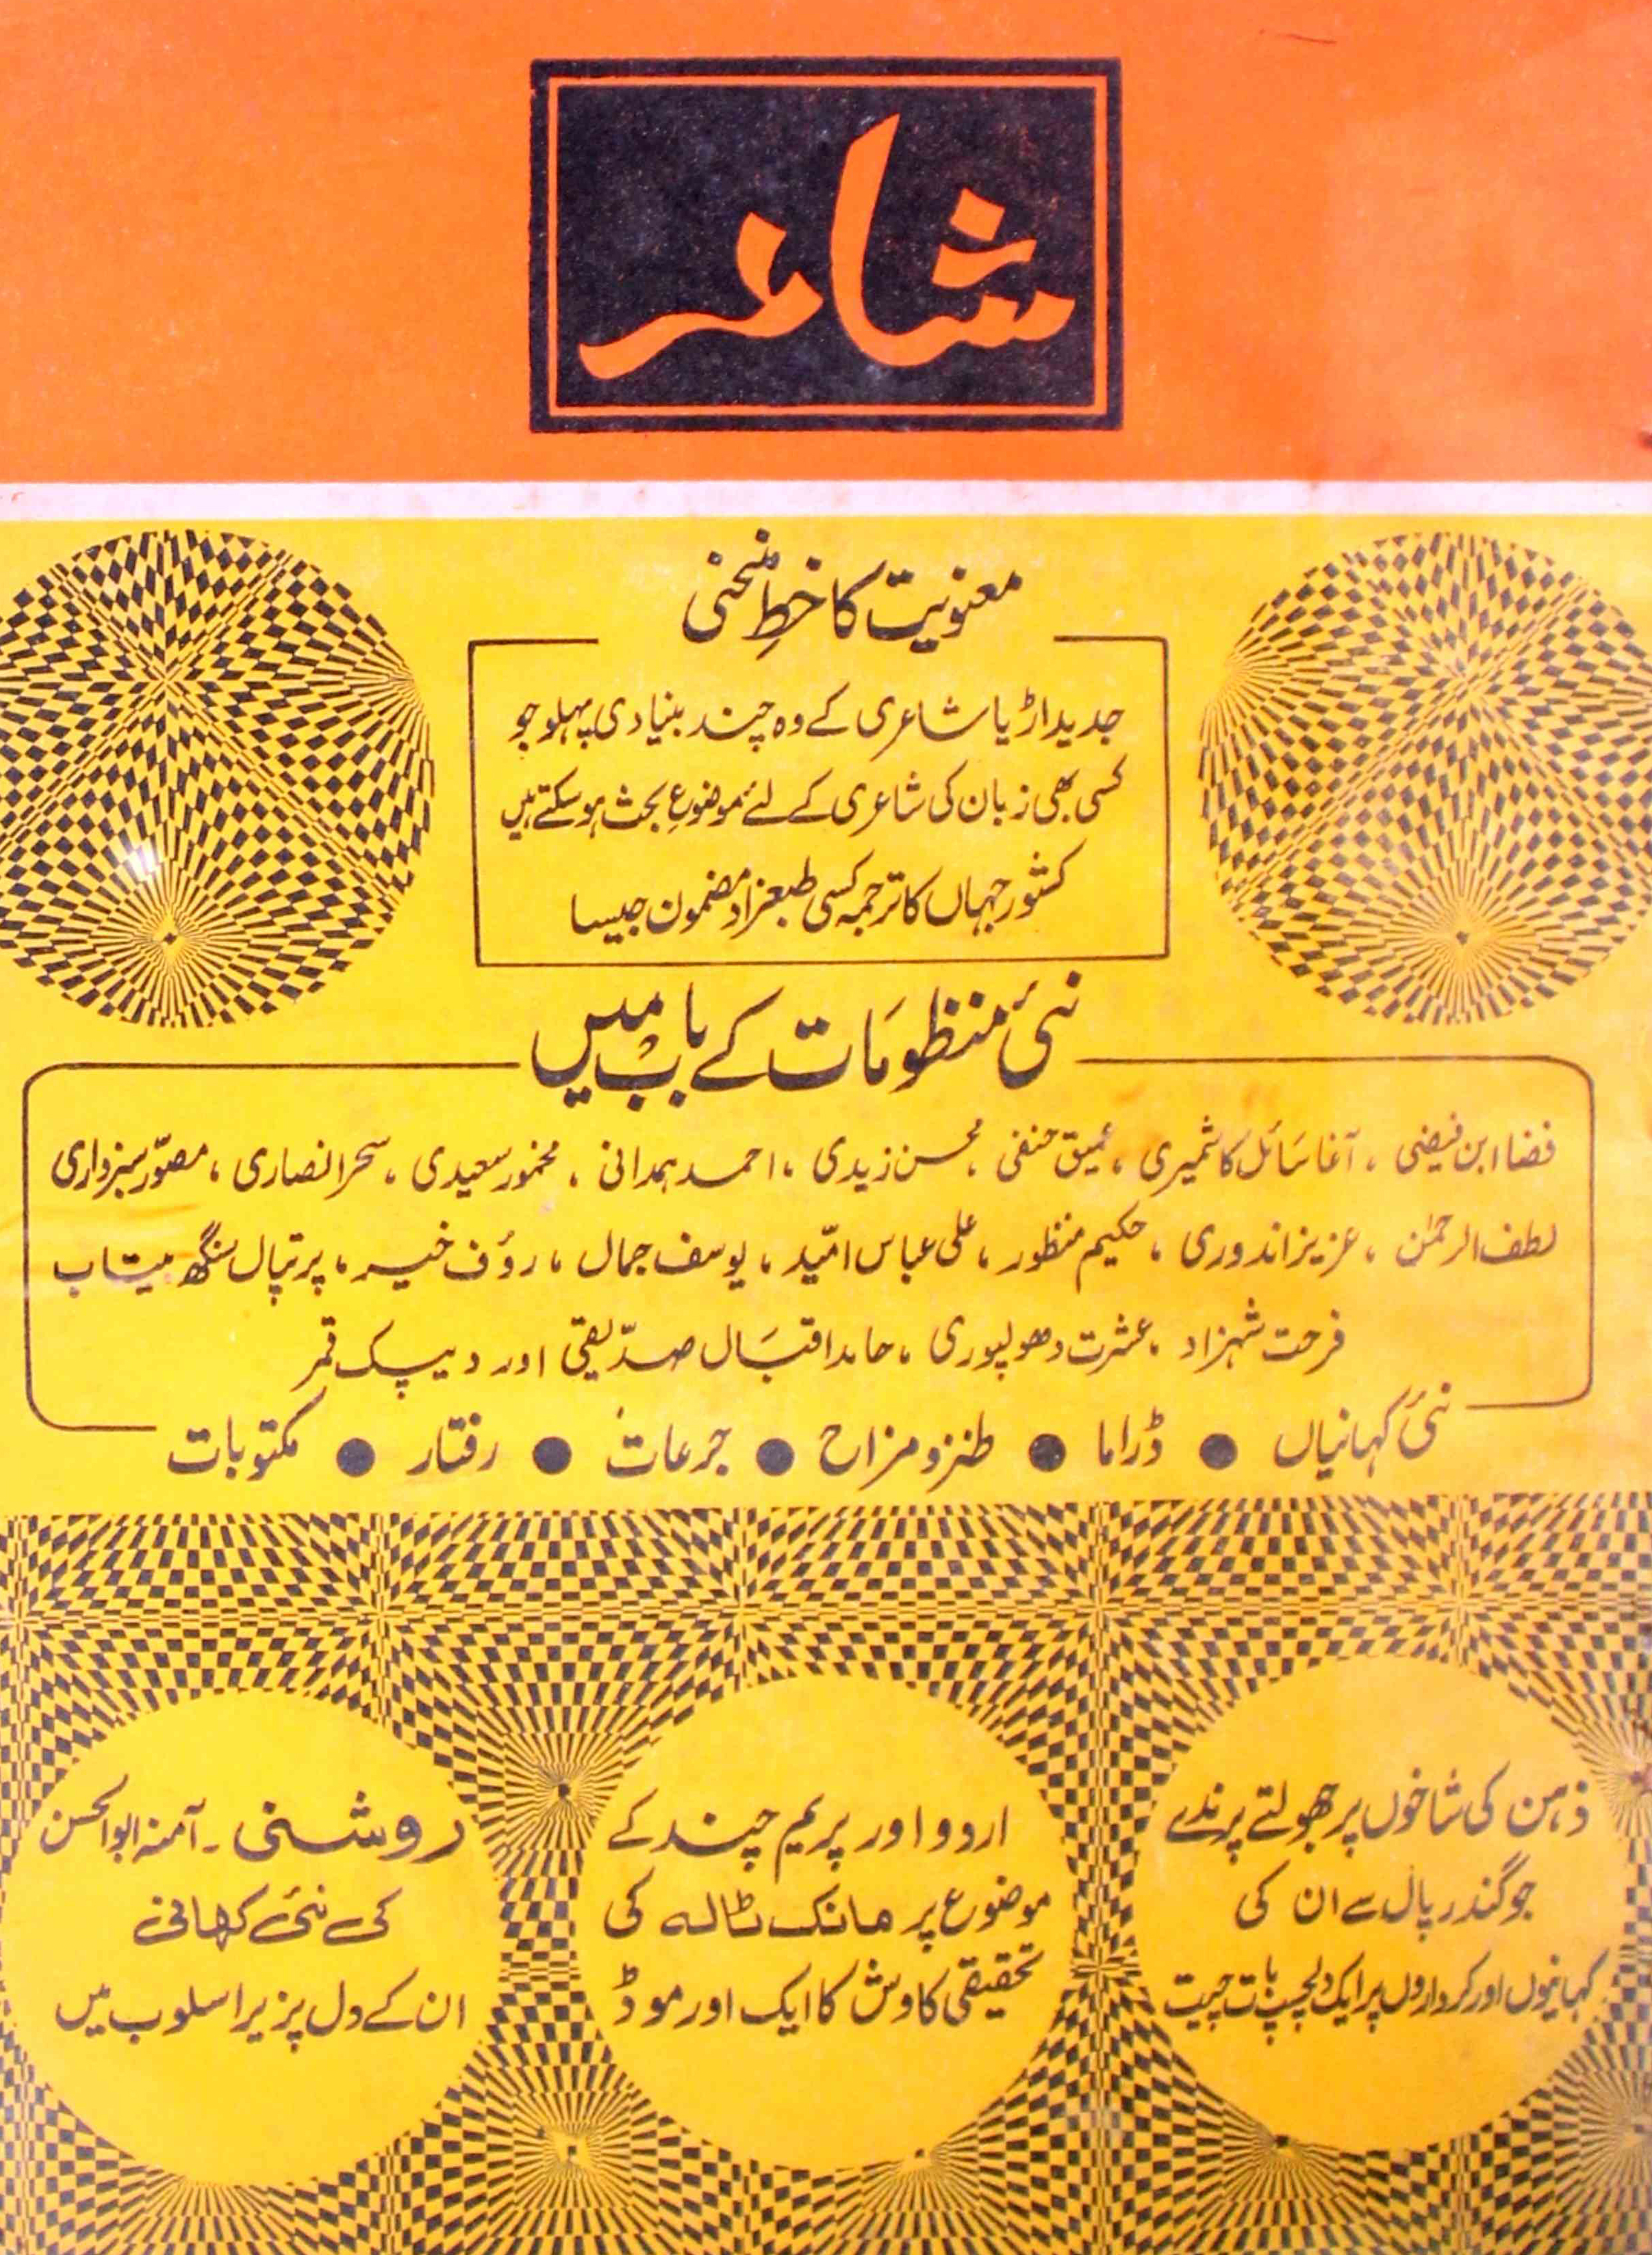 شاعر
معنویت کا خطِ منحنی
جدید اڑیا شاعری کے وہ چند بنیادی پہلو جو
کسی بھی زبان کی شاعری کے لئے موضوعِ بحث ہو سکتے ہیں
کشور جہاں کا ترجمہ کسی طبعزاد مضمون جیسا
نئی منظومات کے باب میں
فضا ابن فیضی ، آغا سائل کاشمیری ، عمیق حنفی ، محسن زیدی ، احمد ہمدانی ، مخمور سعیدی ، سحر انصاری ، مصوّر سبزواری
لطف الرحمٰن ، عزیز اندوری ، حکیم منظور ، علی عباس امّید ، یوسف جمال ، رؤف خیر ، پرتپال سنگھ بیتاب
فرحت شہزاد ، عشرت دھولپوری ، حامد اقبال صدّیقی اور دیپک قمر
نئی کہانیاں ● ڈراما ● طنز و مزاح ● جرعات ● رفتار ● مکتوبات
ذہن کی شاخوں پر جھولتے پرندے
جوگندر پال سے ان کی
کہانیوں اور کرداروں پر ایک دلچسپ بات چیت
اردو اور پریم چند کے
موضوع پر مانک ٹالہ کی
تحقیقی کاوش کا ایک اور موڈ
روشنی - آمنہ ابوالحسن
کی نئی کہانی
ان کے دل پزیر اسلوب میں